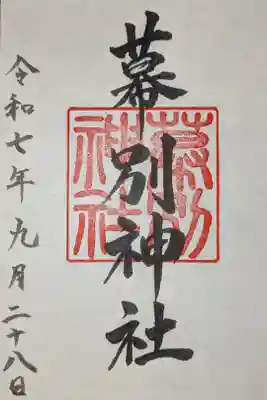 幕別神社
幕別
神社
令和七年九月二十八日